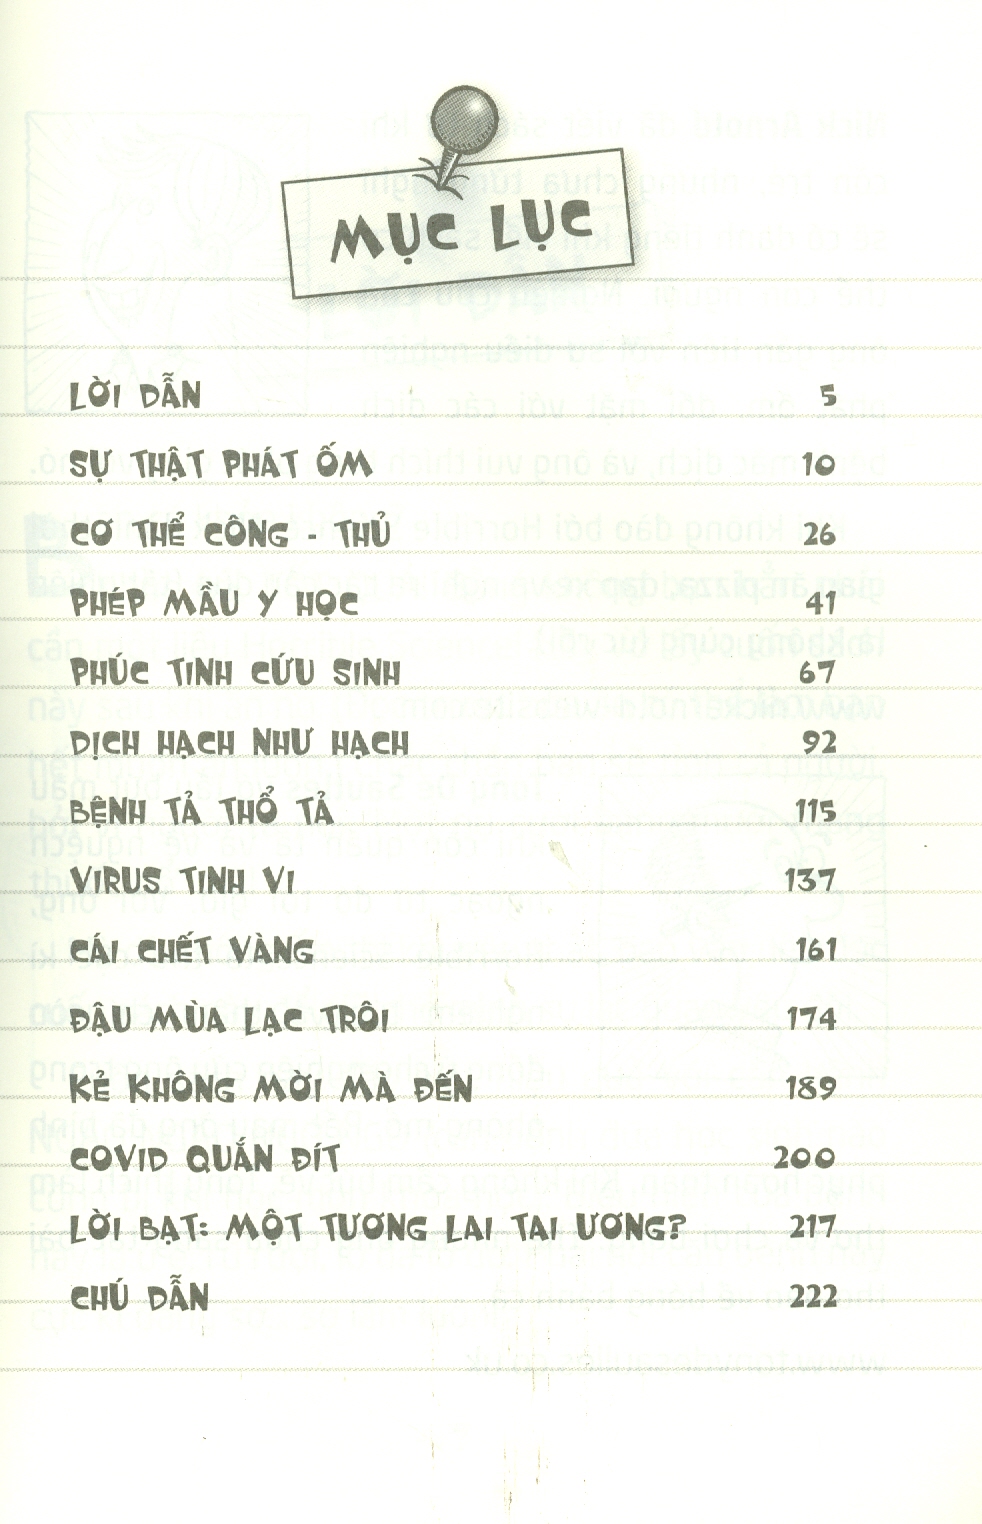 MỤC LỤC
LỜI DẪN 5
SỰ THẬT PHÁT ỐM 10
CƠ THỂ CÔNG - THỦ 26
PHÉP MẦU Y HỌC 41
PHÚC TINH CỨU SINH 67
DỊCH HẠCH NHƯ HẠCH 92
BỆNH TẢ THỔ TẢ 115
VIRUS TINH VI 137
CÁI CHẾT VÀNG 161
ĐẬU MÙA LẠC TRÔI 174
KẺ KHÔNG MỜI MÀ ĐẾN 189
COVID QUẮN ĐÍT 200
LỜI BẠT: MỘT TƯƠNG LAI TAI ƯƠNG? 217
CHÚ DẪN 222